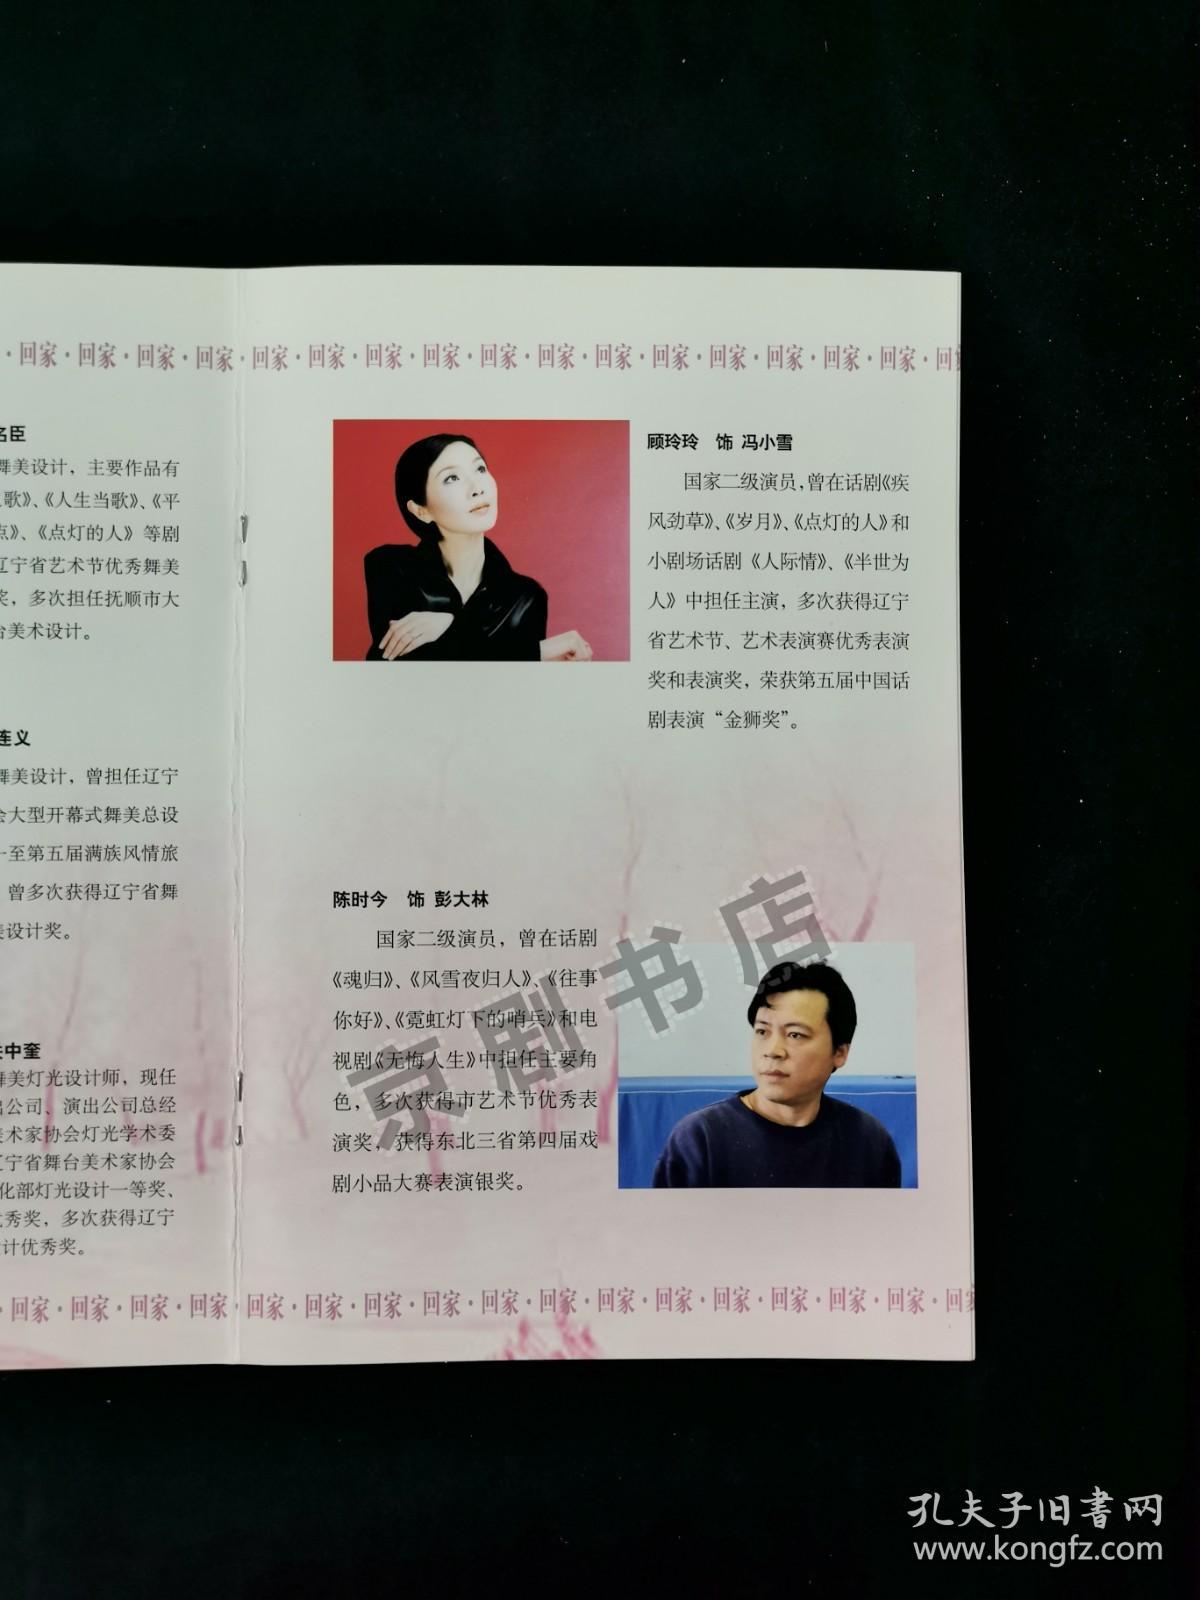 ·回家·回家·回家·回家·回家·回家·回家·回家·回家·回家·回家·回家·回家·回家·回家·回家·回
名臣
舞美设计，主要作品有
歌》、《人生当歌》、《平
点》、《点灯的人》等剧
辽宁省艺术节优秀舞美
奖，多次担任抚顺市大
台美术设计。
连义
舞美设计，曾担任辽宁
会大型开幕式舞美总设
至第五届满族风情旅
曾多次获得辽宁省舞
美设计奖。
中奎
舞美灯光设计师，现任
出公司、演出公司总经
美术家协会灯光学术委
辽宁省舞台美术家协会
化部灯光设计一等奖、
优秀奖，多次获得辽宁
计优秀奖。
顾玲玲 饰 冯小雪
国家二级演员，曾在话剧《疾
风劲草》、《岁月》、《点灯的人》和
小剧场话剧《人际情》、《半世为
人》中担任主演，多次获得辽宁
省艺术节、艺术表演赛优秀表演
奖和表演奖，荣获第五届中国话
剧表演“金狮奖”。
陈时今 饰 彭大林
国家二级演员，曾在话剧
《魂归》、《风雪夜归人》、《往事
你好》、《霓虹灯下的哨兵》和电
视剧《无悔人生》中担任主要角
色，多次获得市艺术节优秀表
演奖，获得东北三省第四届戏
剧小品大赛表演银奖。
京剧书店
·回家·回家·回家·回家·回家·回家·回家·回家·回家·回家·回家·回家·回家·回家·回家·回家·回
孔夫子旧书网
www.kongfz.com